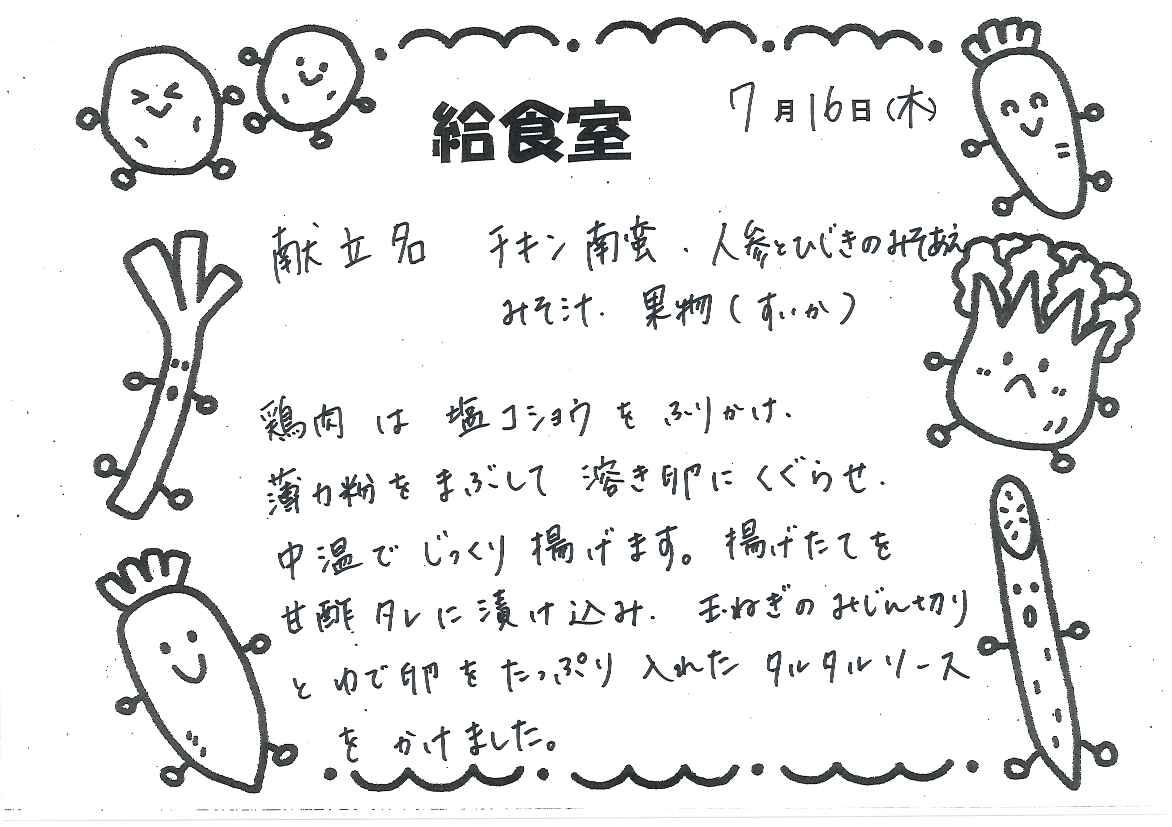 給食室
7月16日(木)
献立名 チキン南蛮、人参とひじきのみそあえ
みそ汁、果物(すいか)
鶏肉は塩コショウをふりかけ、
薄力粉をまぶして溶き卵にくぐらせ、
中温でじっくり揚げます。揚げたてを
甘酢タレに漬け込み、玉ねぎのみじん切り
とゆで卵をたっぷり入れたタルタルソース
をかけました。